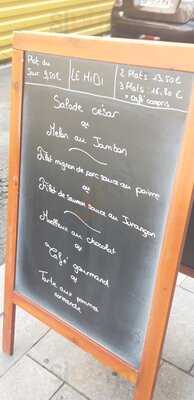 Plat du
Jour 9,50€
LE MIDI
2 Plats 13.50€
3 Plats 15,80 €
+ Café compris
Salade césar
ou
Melon au Jambon
Filet mignon de porc sauce au poivre
ou
Filet de saumon sauce au Jurançon
Moelleux au chocolat
ou
Café gourmand
ou
Tarte aux pommes
normande